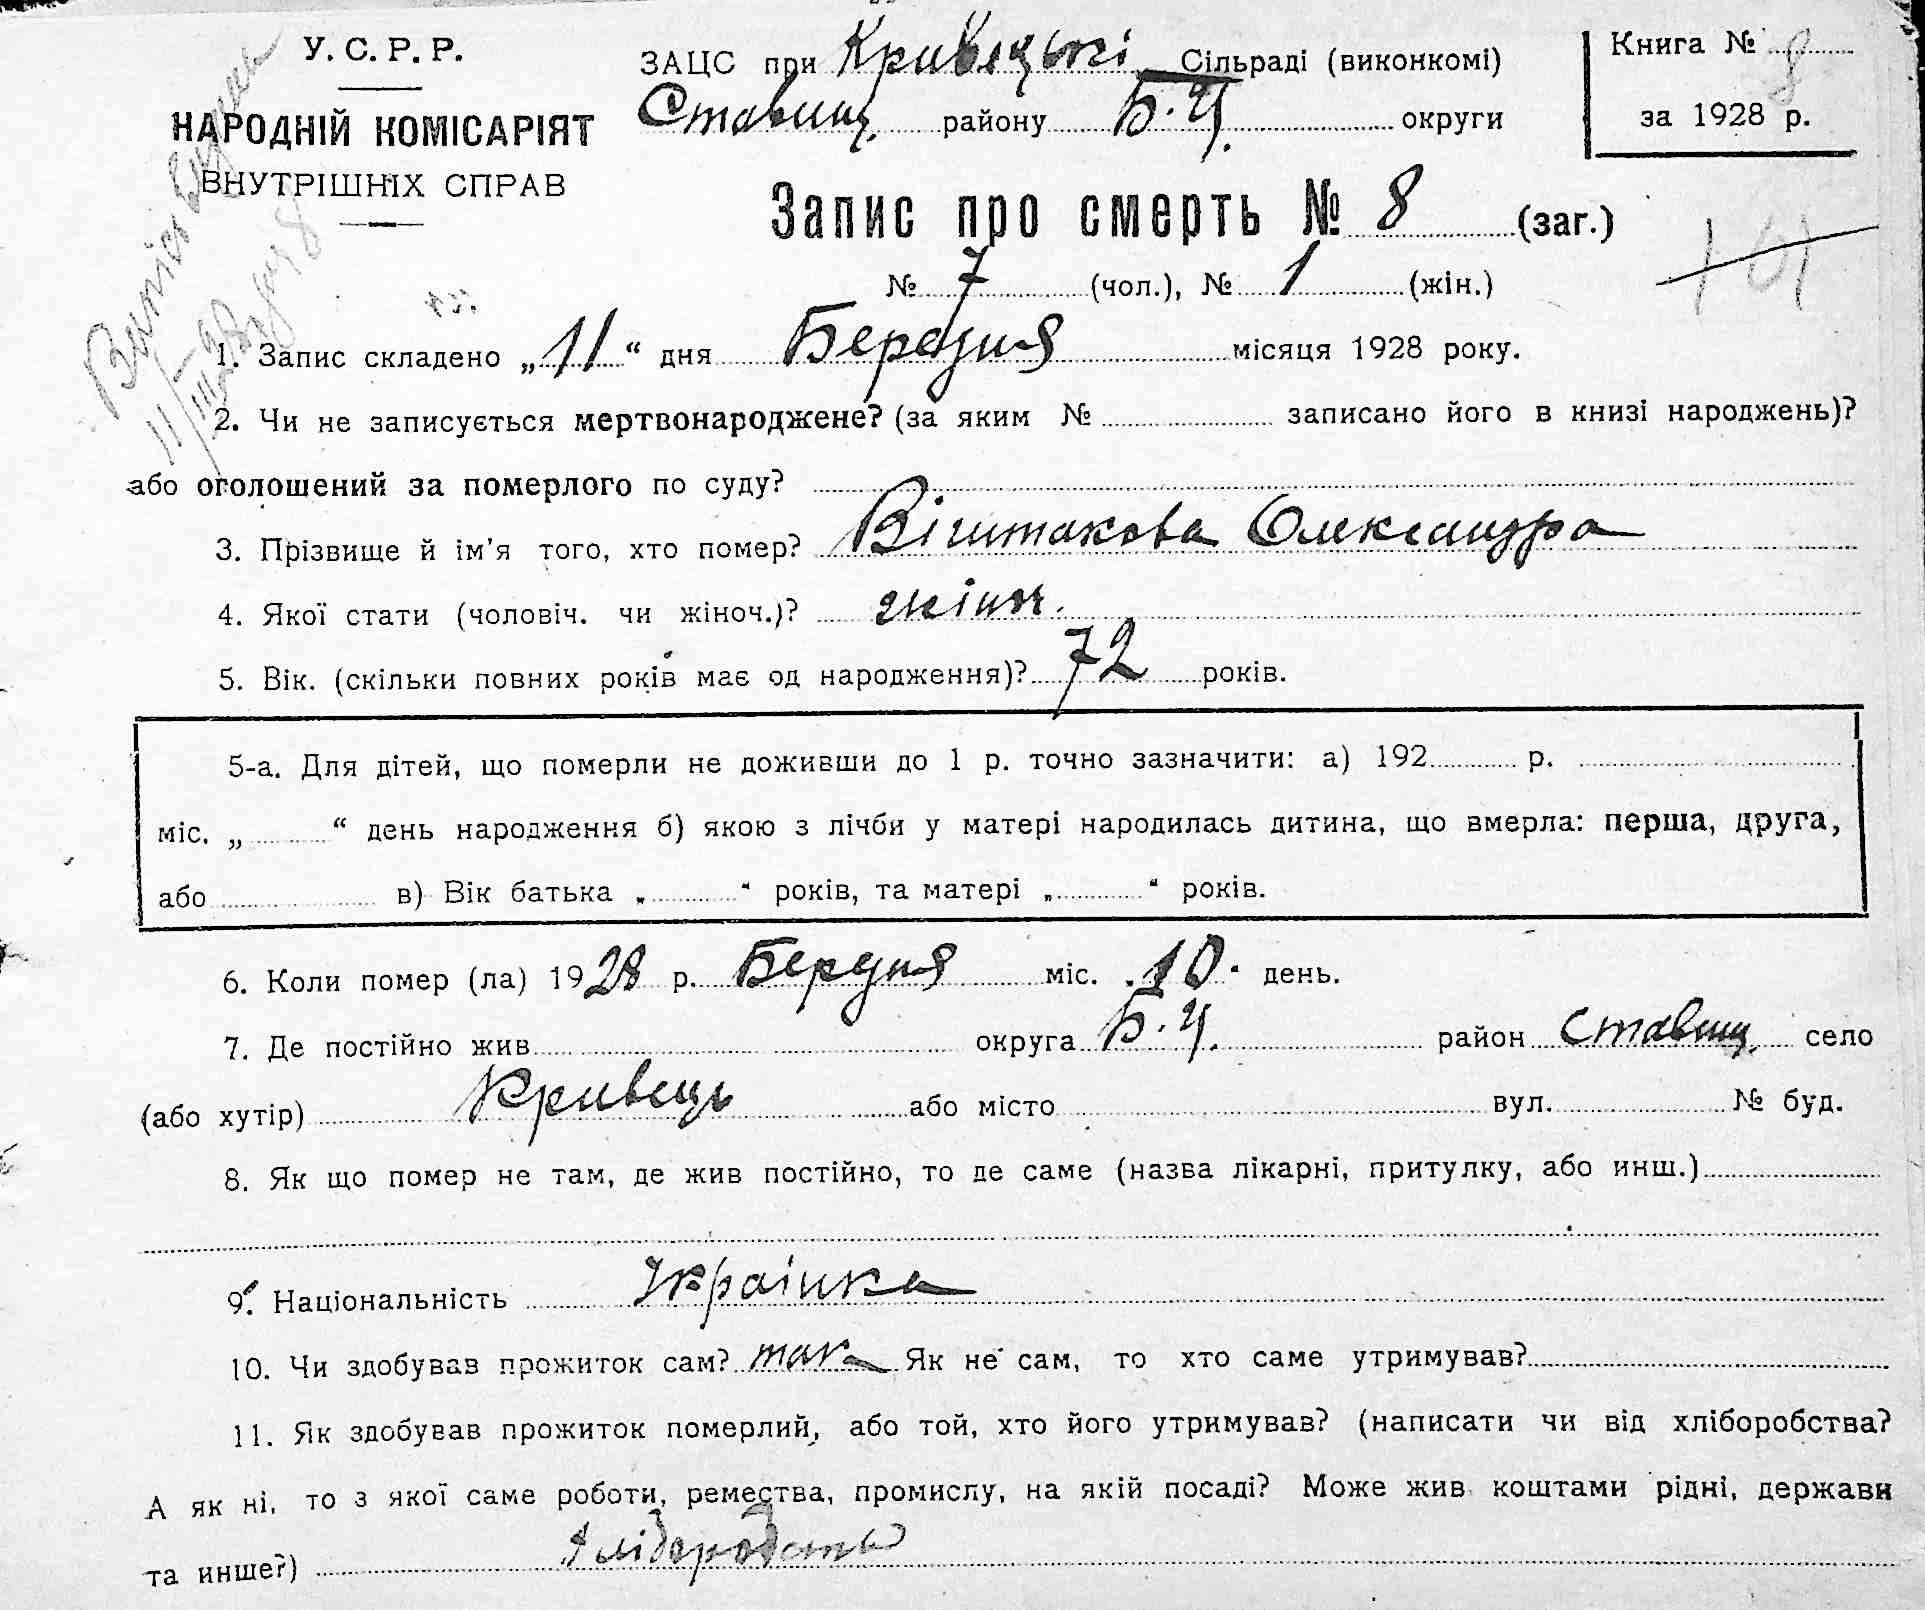 У. С. Р. Р.
НАРОДНІЙ КОМІСАРІЯТ
ВНУТРІШНІХ СПРАВ
ЗАЦС при Кривецькі Сільраді (виконкомі)
Ставищ. району Б.Ц. округи
Книга № 8
за 1928 р.
Запис про смерть № 8 (заг.)
№ 7 (чол.), № 1 (жін.)
1. Запис складено „11“ дня Березня місяця 1928 року.
2. Чи не записується мертвонароджене? (за яким № записано його в книзі народжень)?
або оголошений за померлого по суду?
3. Прізвище й ім'я того, хто помер? Олександра
4. Якої стати (чоловіч. чи жіноч.)? жіноч.
5. Вік. (скільки повних років має од народження)? 72 років.
5-а. Для дітей, що померли не доживши до 1 р. точно зазначити: а) 192 р.
міс. „ “ день народження б) якою з лічби у матері народилась дитина, що вмерла: перша, друга,
або в) Вік батька „ “ років, та матері „ “ років.
6. Коли помер (ла) 1928 р. Березня міс. „10“ день.
7. Де постійно жив округа Б.Ц. район Ставищ. село
(або хутір) Кривець або місто вул. № буд.
8. Як що помер не там, де жив постійно, то де саме (назва лікарні, притулку, або инш.)
9. Національність Українка
10. Чи здобував прожиток сам? так Як не сам, то хто саме утримував?
11. Як здобував прожиток померлий, або той, хто його утримував? (написати чи від хліборобства?
А як ні, то з якої саме роботи, ремества, промислу, на якій посаді? Може жив коштами рідні, держави
та инше?) хліборобств